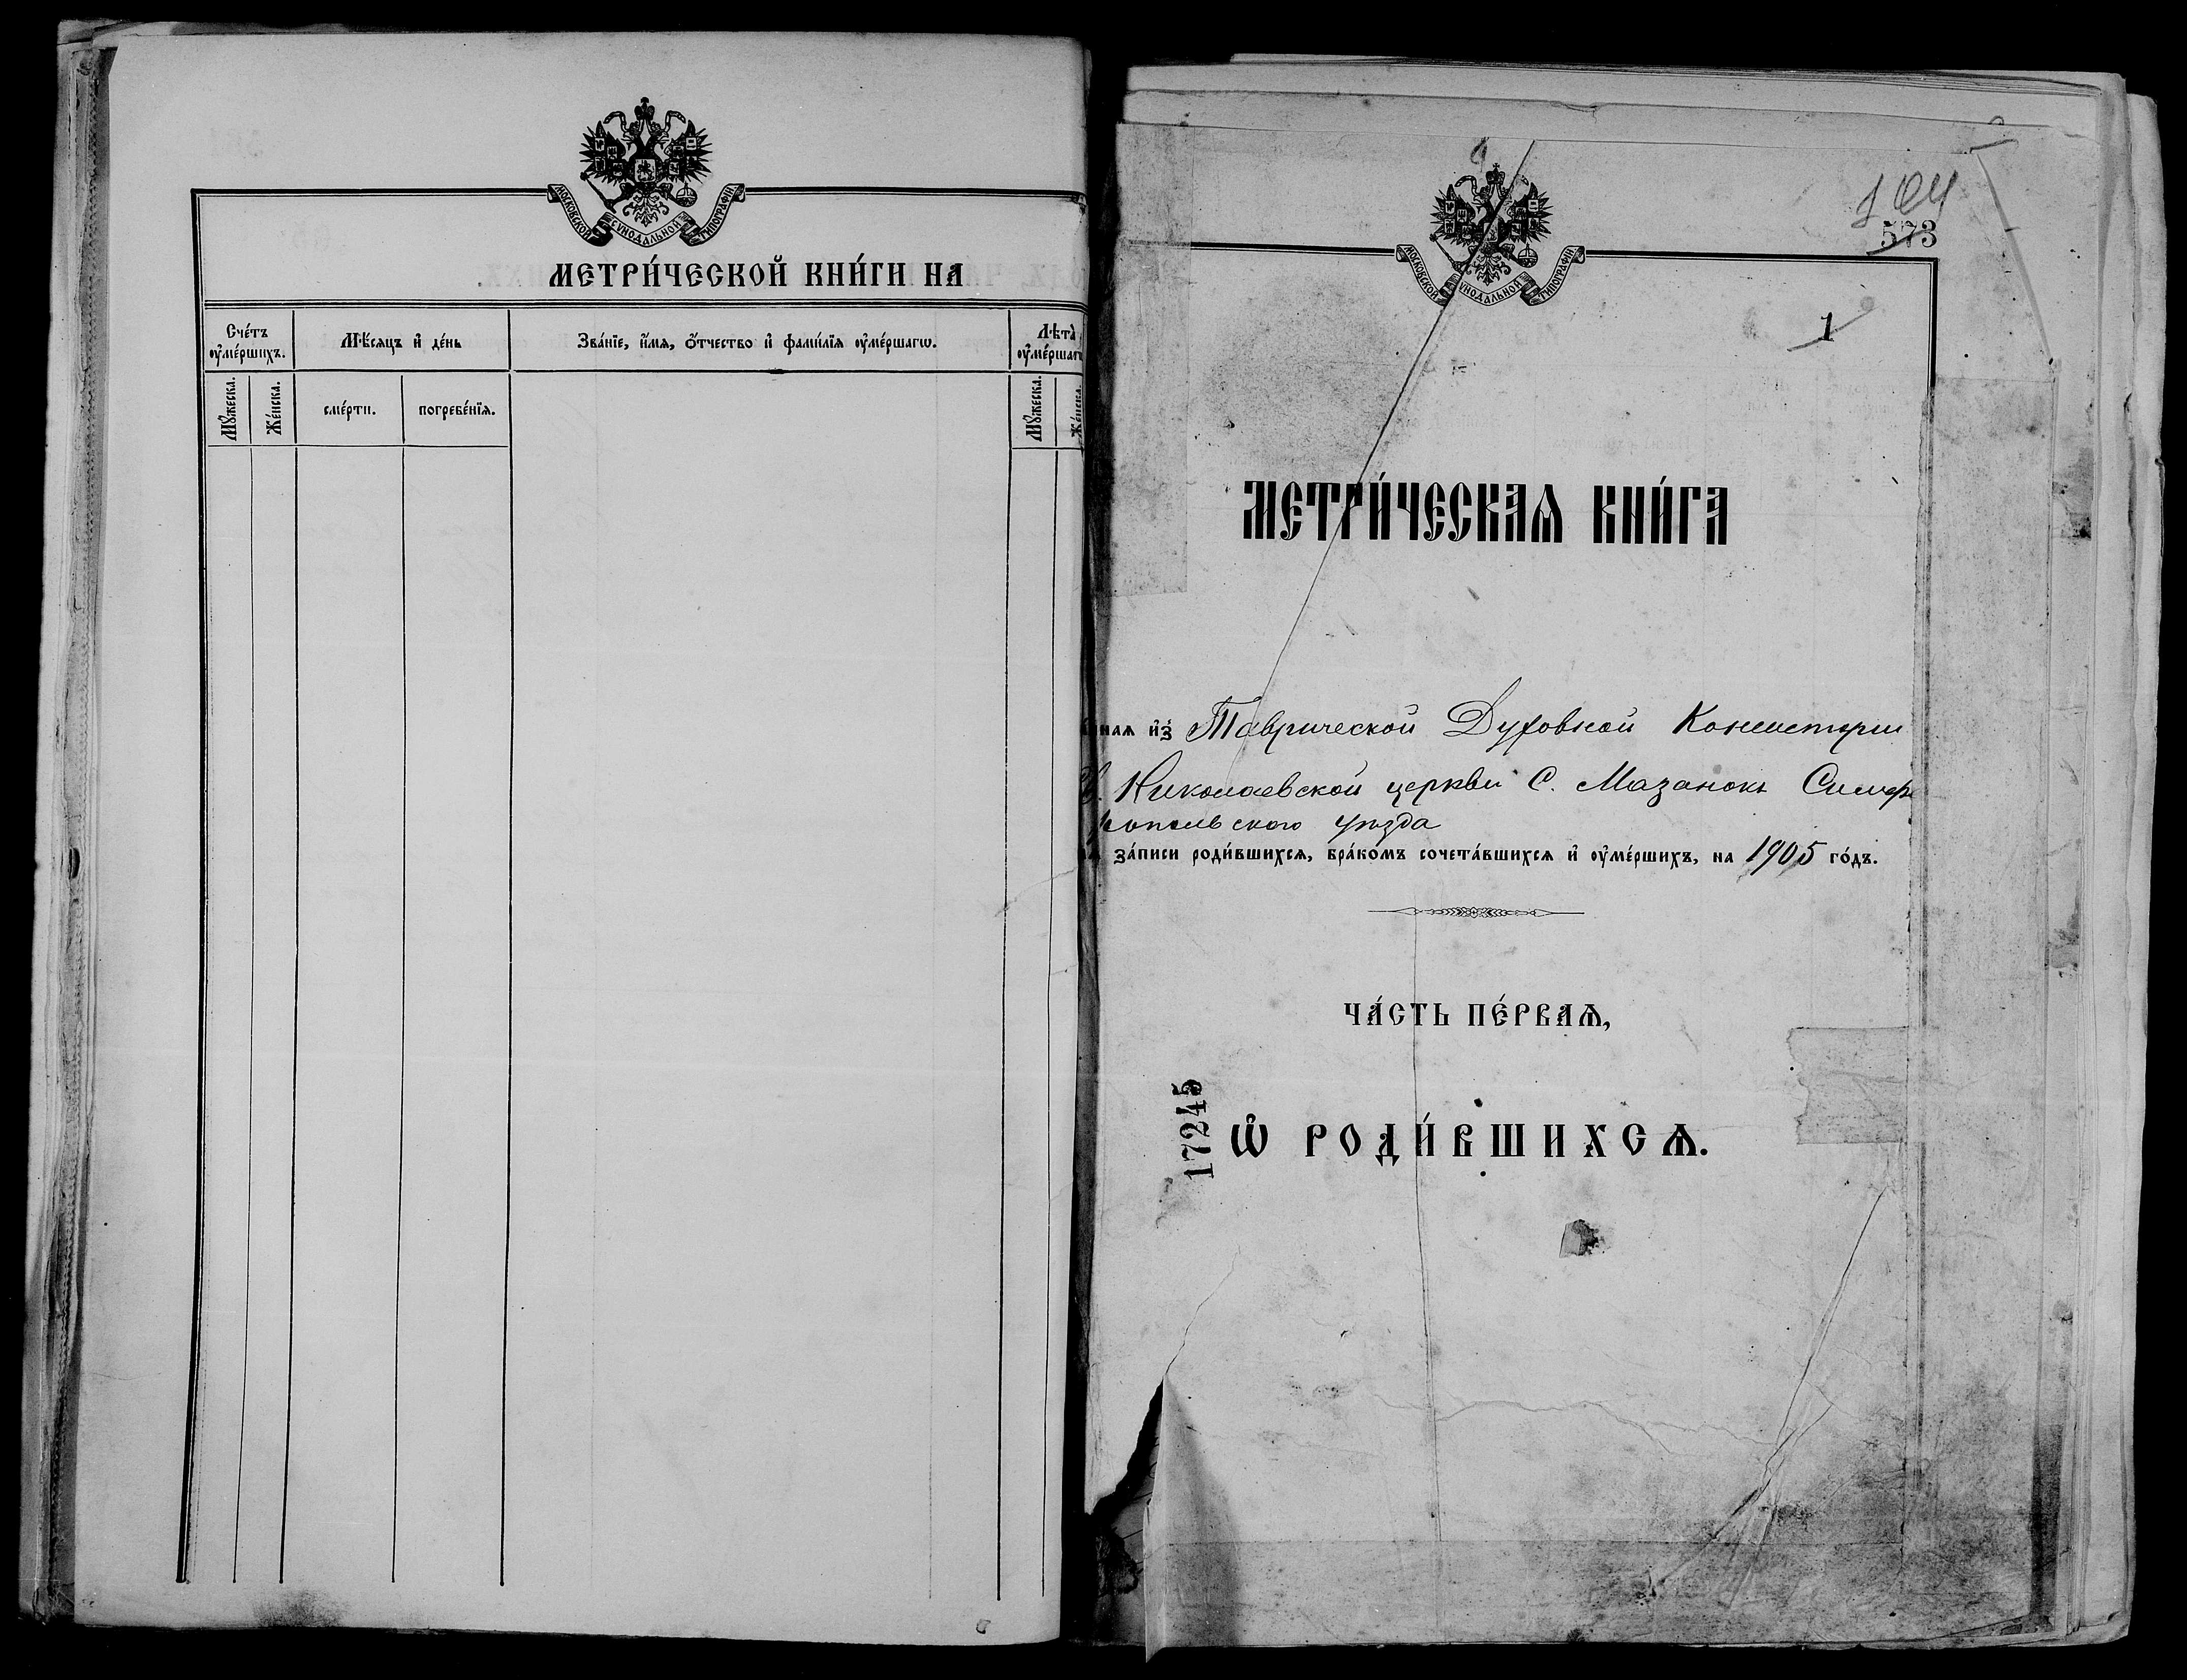 МОСКОВСКОЙ СѴНОДАЛЬНОЙ ТИПОГРАФІИ
МЕТРИ́ЧЕСКОЙ КНИ́ГИ НА
Сче́тъ ᲂу҆ме́ршихъ.
Мѣ́сяцъ и҆ де́нь
Зва́нїе, и҆́мѧ, ѻ҆́тчество и҆ фами́лїѧ ᲂу҆ме́ршагѡ.
Лѣ́та
Мꙋ́жеска.
Же́нска.
сме́рти.
погребе́нїѧ.
Мꙋ́жеска.
Же́нска.
573
МОСКОВСКОЙ СѴНОДАЛЬНОЙ ТИПОГРАФІИ
1
МЕТРИ́ЧЕСКАѦ КНИ́ГА
и҆з̾ Таврической Духовной Консисторіи
Николаевской церкви С. Мазанокъ Симфе
ропольскаго уѣзда
за́писи роди́вшихсѧ, бра́комъ сочета́вшихсѧ и҆ ᲂу҆ме́ршихъ, на 1905 го́дъ.
ЧА́СТЬ ПЕ́РВАѦ,
17245
Ѡ҆ РОДИ́ВШИХСѦ.